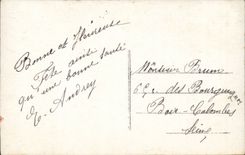 Bonne et Heureuse
Fête ainsi
qu'une bonne santé
E. Andrey
Monsieur Brun
6 des Bourguignons
Bois-Colombes
Seine